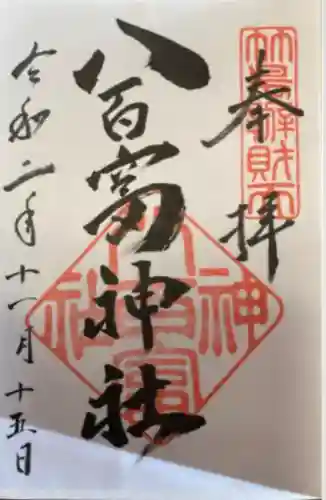 竹島辨財天
奉拝
八百富神社
八百富神社
令和二年十一月十五日